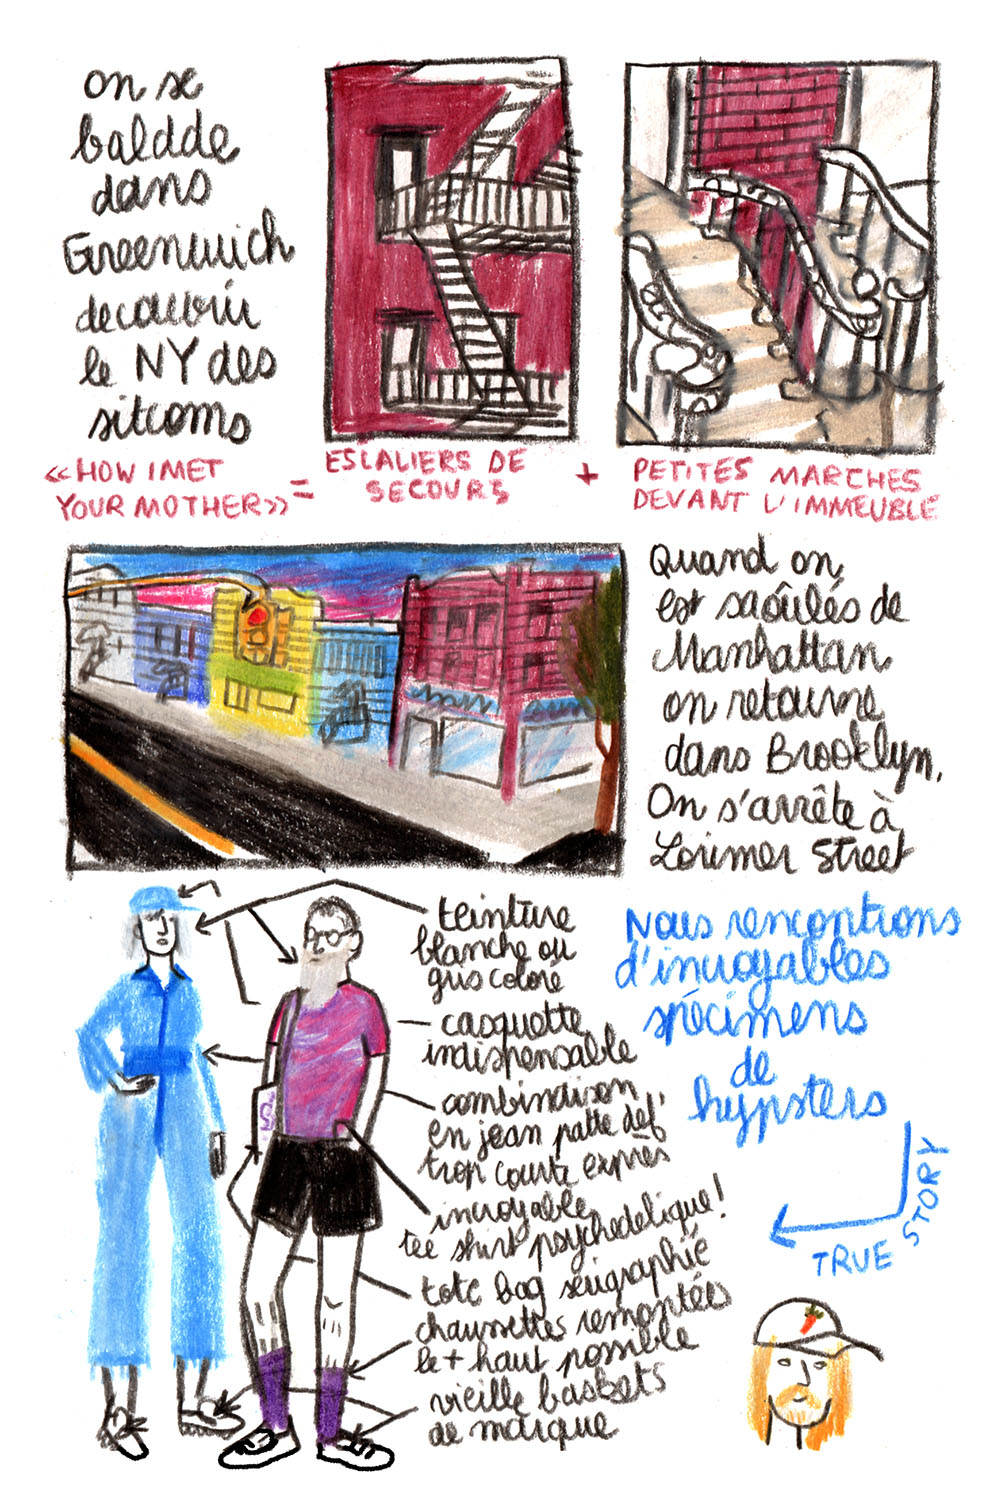 on se
baldde
dans
Greenwich
decouvrir
le NY des
sitcoms
«HOW I MET
YOUR MOTHER»
=
ESCALIERS DE
SECOURS
+
PETITES MARCHES
DEVANT L'IMMEUBLE
Quand on
est saôulés de
Manhattan
on retourne
dans Brooklyn.
On s'arrête à
Lorimer Street
Nous rencontrons
d'incroyables
spécimens
de
hypsters
TRUE STORY
teinture
blanche ou
gris coloré
casquette
indispensable
combinaison
en jean patte def'
trop courte exprès
incroyable
tee shirt psychedelique!
tote bag sérigraphié
chaussettes remontées
le + haut possible
vieille baskets
de marque